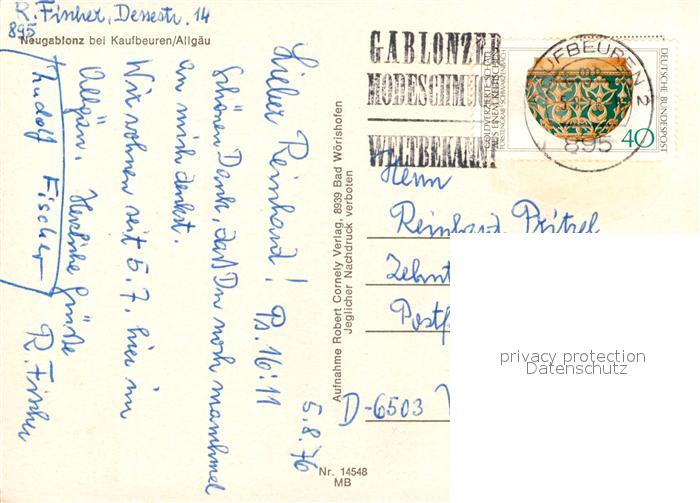 R. Fischer, Dessestr. 14
895
Neugablonz bei Kaufbeuren/Allgäu
Lieber Reinhard! Ps. 16:11
Schönen Dank, daß Du noch manchmal
an mich denkst.
Wir wohnen seit 5.7. hier im
Allgäu. Herzliche Grüße
R. Fischer
Rudolf Fischer
5.8.76
Aufnahme Robert Cornely Verlag, 8939 Bad Wörishofen
Jeglicher Nachdruck verboten
Nr. 14548
MB
GABLONZER
MODESCHMUCK
WELTBEKANNT
KAUFBEUREN 2
895
GOLDVERZIERTE SCHALE
AUS EINEM KELTISCHEN
FÜRSTENGRAB SCHWARZENBACH
DEUTSCHE BUNDESPOST
40
Herrn
Reinhard Pritzel
Zehnt
Postf
D-6503
privacy protection
Datenschutz